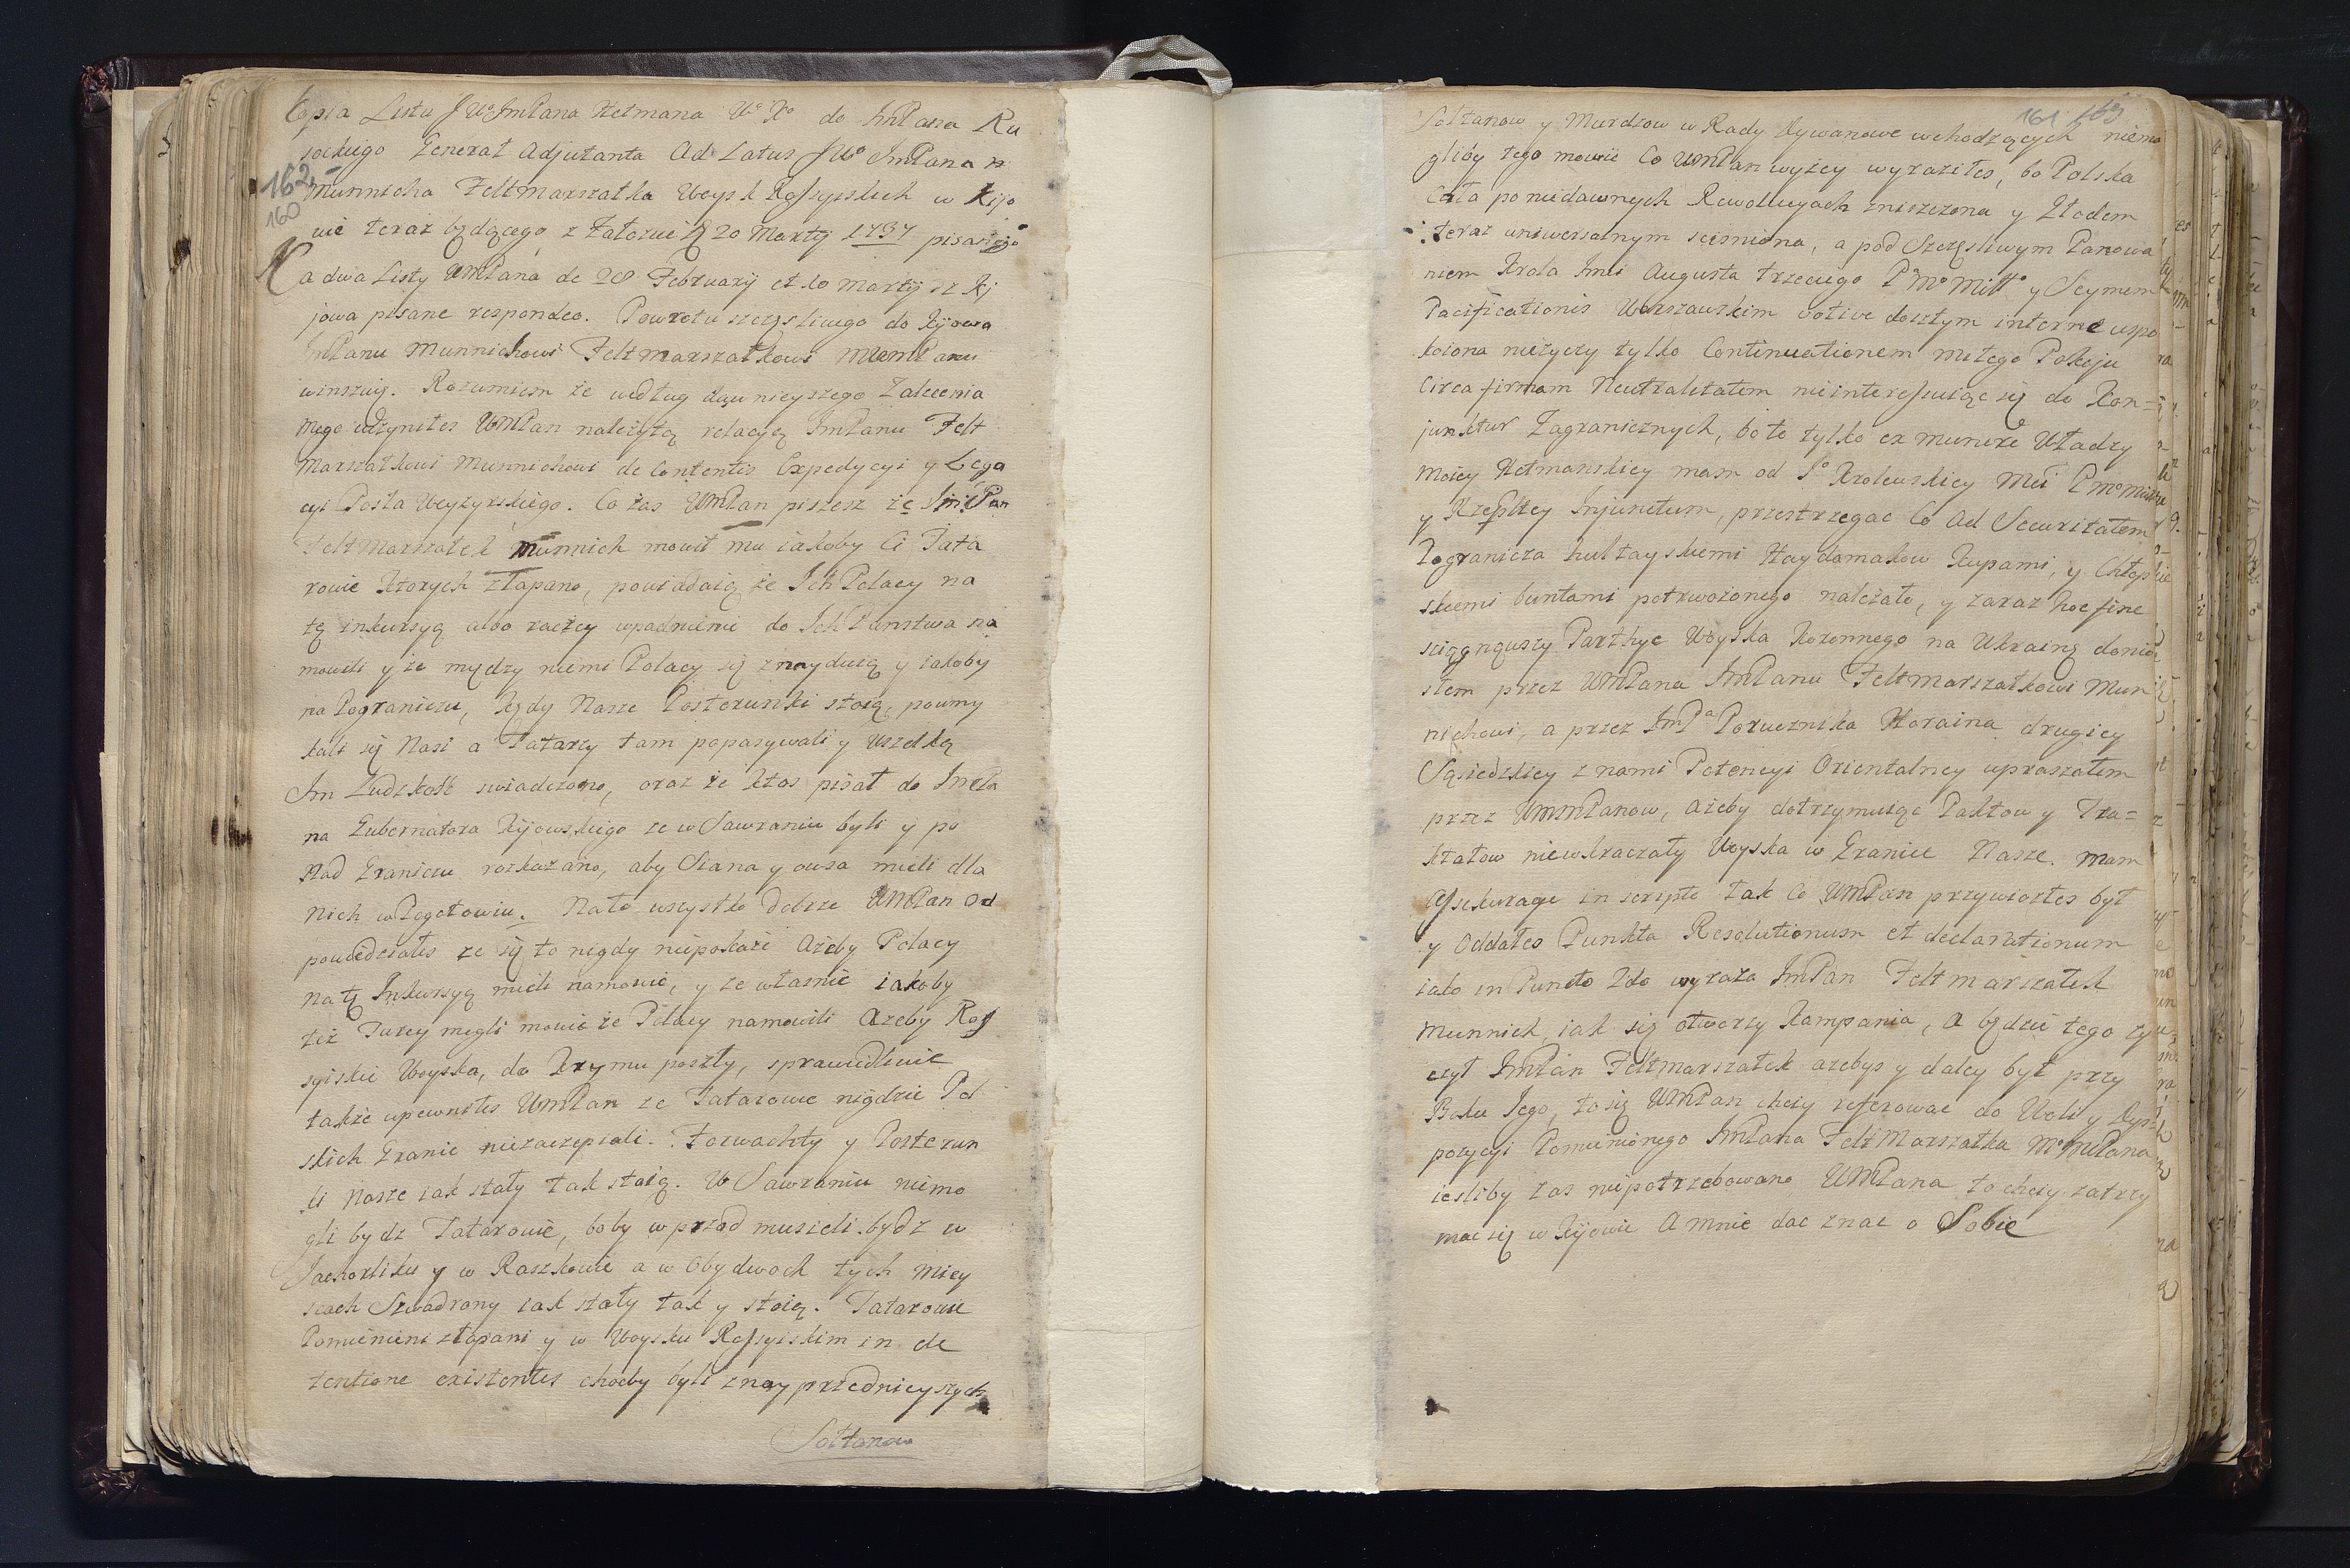 Copia Listu JWo ImPana Hetmana Wo Ko do ImPana Ru
sockiego Generał Adjutanta Ad Latus JWo ImPana
162
160
Munnicha Feltmarszałka Woysk Rossyiskich w Kijo
wie teraz będącego, z Załoziec 20 Martij 1737 pisanego
Na dwa Listy WMPana de 28 February et 10 Martij z Ki
jowa pisane respondeo. Powrotu szczęsliwego do Kijowa
ImPanu Munnichowi Feltmarszałkowi MWMPanu
winszuię. Rozumiem że według dawnieyszego Zalecenia
mego uczyniłes WMPan należytą relacyą ImPanu Felt
Marszałkowi Munnichowi de Contentis Expedycyi y Lega
cyi Posła Węgyrskiego. Co zas WMPan piszesz że ImPan
FeltMarszałek Munnich mowił mu iakoby Ci Tata
rowie ktorych złapano, powiadaią że Ich Polacy na
tę inkursyą albo raczey wpadnienie do Ich Panstwa na
mowili y że między niemi Polacy się znayduią y iakoby
na Pograniczu, kędy Nasze Posterunki stoią, poumy
kali się Nasi a Tatarzy tam popasywali y wszelką
Im Ludzkość swiadczono, oraz że ktos pisał do ImPa
na Gubernatora Kijowskiego ze w Sawraniu byli y po
nad Granicu rozkazano, aby Siana y owsa mieli dla
nich w Pogotowiu. Na to wszystko Dobrze WMPan Od
powiedziałes ze się to nigdy niepokaże Ażeby Polacy
na tę Inkursyą mieli namowić, y ze własnie iakoby
też Turcy mogli mowić że Polacy namowili Azeby Ros
syiskie Woyska, do Krymu poszły, sprawiedliwie
także upewniłes WMPan ze Tatarowie nigdzie Pol
skich Granic niezaczepiali. Forwachty y Posterun
ki Nasze iak stały tak stoią. W Sawraniu niemo
gli bydz Tatarowie, boby w przod musieli bydz w
Jachorliku y w Raszkowie a w Obydwoch tych miey
scach Szwadrony iak stały tak y stoią. Tatarowie
Pomienieni złapani y w Woysku Rossyiskim in de
tentione existentes choćby byli z nayprzednieyszych
Sołtanow
161 163
Sołtanow y Murdzow w Rady Dywanowe wchodzących niemo
gliby tego mowić Co WMPan wyżey wyraziłes, bo Polska
Cała po niedawnych Rewolucyach zniszczona y Głodem
teraz uniwersalnym scisniona, a pod Szczęsliwym Panowa
niem Krola Imci Augusta Trzeciego P Mo Mitto y Seymem
Pacificationis Warszawskim votive doszłym interne uspo
koiona nieżyczy tylko Continuationem miłego Pokoju
Circa firmam Neutralitatem nieinteressuiąc się do Kon-
junktur Zagranicznych, bo to tylko ex munere Władzy
moiey Hetmanskiey mam od So Krolewskiey Mci P mo Mi
y Rzeplltey Injunctum, przestrzegac Co Ad Securitatem
Pogranicza hultayskiemi Haydamakow Kupami, y Chłop
skiemi buntami potrwożonego należało, y zaraz hoc fine
sciągnąwszy Parthye Woyska Koronnego na Ukrainę donio
słem przez WMPana ImPanu Feltmarszałkowi Mun
nichowi, a przez ImPa Porucznika Horaina drugiey
Sąsiedzkiey z nami Potencyi Orientalney upraszałem
przez WMMPanow, Ażeby dotrzymuiąc Paktow y Tra=
ktatow niewkraczały Woyska w Granice Nasze. Mam
Assekuracye in scripto tak Co WMPan przywiozłes był
y Oddałes Punkta Resolutionum et declarationum
iako in Puncto 2do wyraża ImPan Feltmarszałek
Munnich, iak się otworzy Kampania, A będzie tego ży
czył ImPan Feltmarszałek azebys y daley był przy
Boku Jego, to się WMPan chciey referować do Woli y Dys=
pozycyi Pomienionego ImPana FeltMarszałka MoMPana
iesliby zas niepotrzebowano WMPana to chciey zatrzy
mac się w Kijowie A mnie dac znac o Sobie